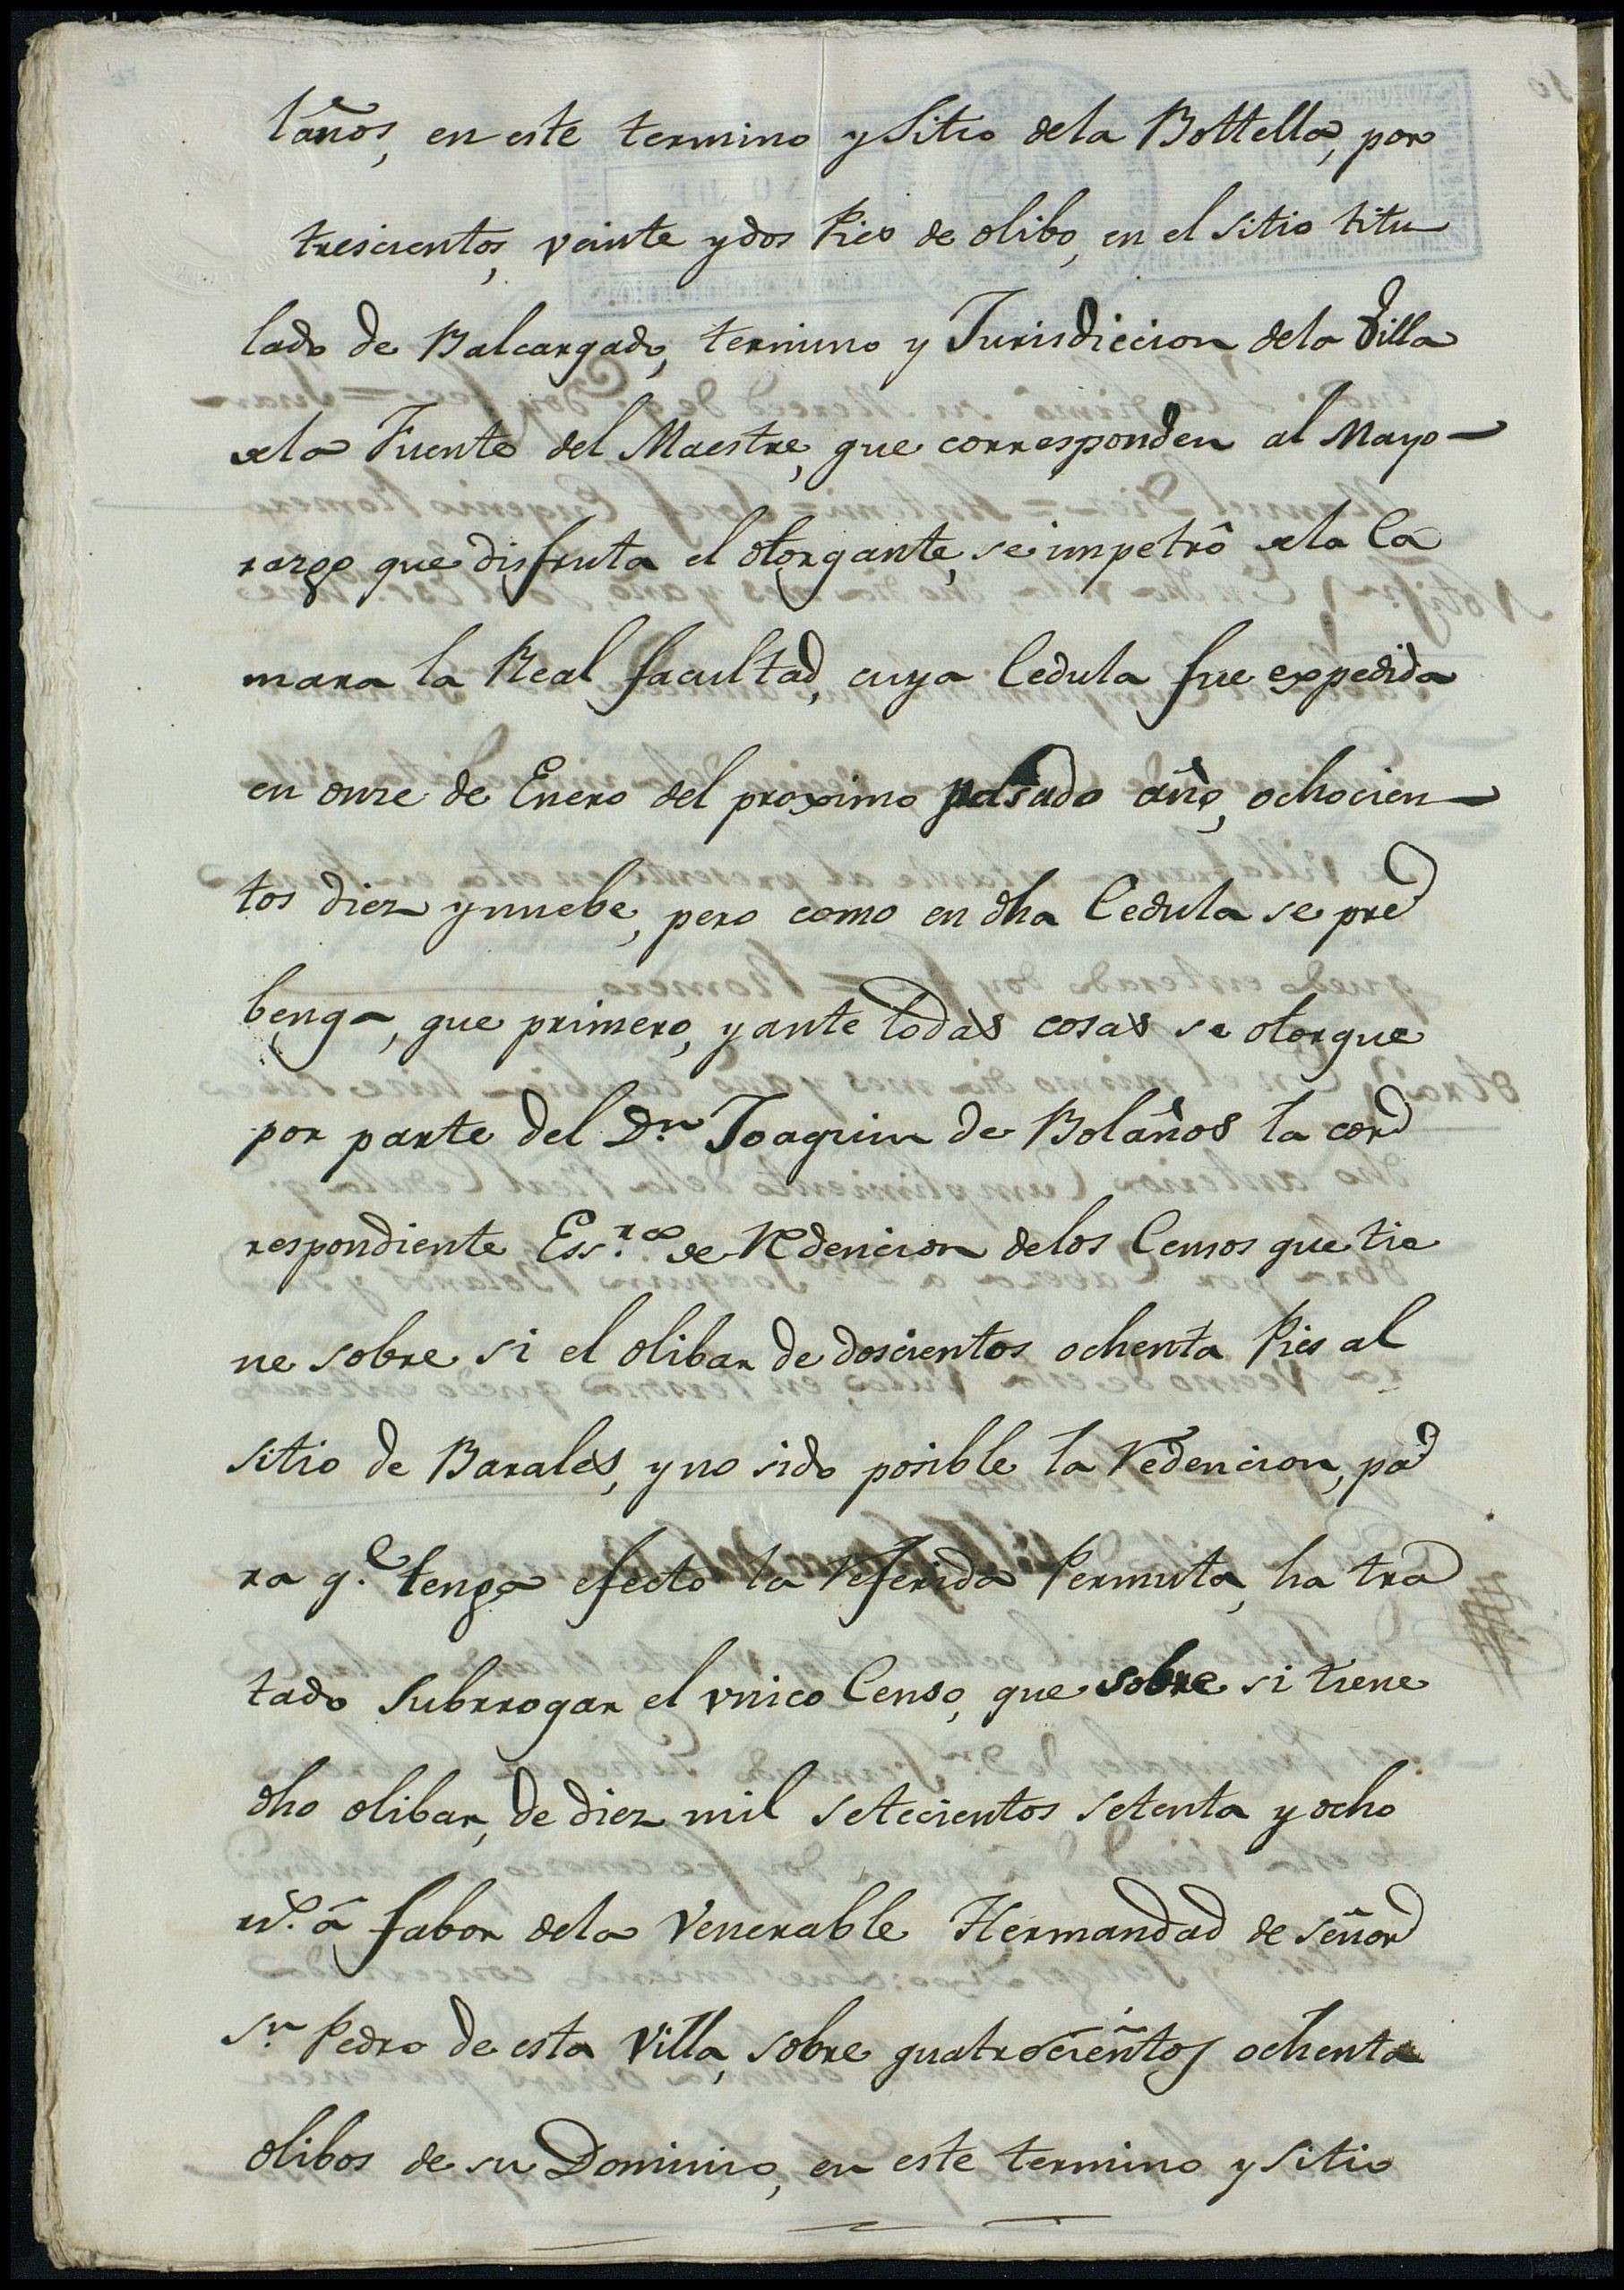 laños, en este termino y Sitio dela Bottella, por
trescientos, veinte y dos Pies de olibo, en el sitio titu
lado de Balcargado, termino y Jurisdiccion dela Villa
dela Fuente del Maestre, que corresponden al Mayo-
razgo que disfruta el otorgante, se impetrô dela Ca
mara la Real facultad, cuya Cedula fue expedida
en onze de Enero del proximo pasado año, ochocien-
tos diez y nuebe, pero como en dha Cedula se pre
benga, que primero, y ante todas cosas se otorgue
por parte del Dn. Joaquin de Bolaños la cor
respondiente Essra. de Redencion delos Censos que tie
ne sobre si el olibar de doscientos ochenta Pies al
sitio de Barales, y no sido posible la Redencion, pa
ra q.e tenga efecto la Referida Permuta, ha tra
tado Subrrogar el vnico Censo, que sobre si tiene
dho olibar, de diez mil setecientos setenta y ocho
rs. â fabor dela Venerable Hermandad de señor
Sn. Pedro de esta Villa, sobre quatrocientos ochenta
olibos de su Dominio, en este termino y Sitio